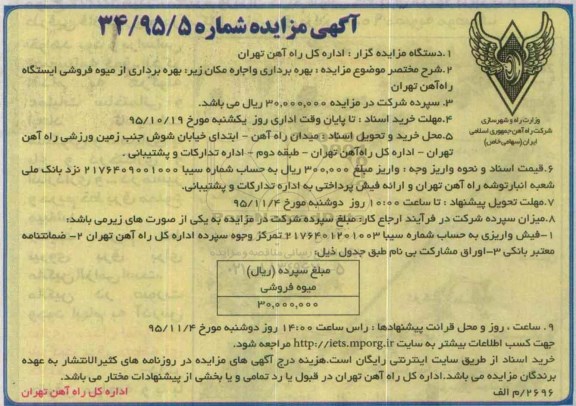 آگهی مزایده شماره ۳۴/۹۵/۵
وزارت راه و شهرسازی
شرکت راه آهن جمهوری اسلامی
ایران (سهامی خاص)
۱.دستگاه مزایده گزار : اداره کل راه آهن تهران
۲.شرح مختصر موضوع مزایده : بهره برداری واجاره مکان زیر: بهره برداری از میوه فروشی ایستگاه
راه‌آهن تهران
۳. سپرده شرکت در مزایده ۳۰,۰۰۰,۰۰۰ ریال می باشد.
۴.مهلت خرید اسناد : تا پایان وقت اداری روز یکشنبه مورخ ۹۵/۱۰/۱۹
۵.محل خرید و تحویل اسناد : میدان راه آهن - ابتدای خیابان شوش جنب زمین ورزشی راه آهن
تهران - اداره کل راه‌آهن تهران - طبقه دوم - اداره تدارکات و پشتیبانی .
۶.قیمت اسناد و نحوه واریز وجه : واریز مبلغ ۳۰۰,۰۰۰ ریال به حساب شماره سیبا ۲۱۷۶۴۰۹۰۰۱۰۰۰ نزد بانک ملی
شعبه انبارتوشه راه آهن تهران و ارائه فیش پرداختی به اداره تدارکات و پشتیبانی.
۷.مهلت تحویل پیشنهاد : تا ساعت ۱۰:۰۰ روز دوشنبه مورخ ۹۵/۱۱/۴
۸.میزان سپرده شرکت در فرآیند ارجاع کار: مبلغ سپرده شرکت در مزایده به یکی از صورت های زیرمی باشد:
۱-فیش واریزی به حساب شماره سیبا ۲۱۷۶۴۰۱۲۰۱۰۰۳ تمرکز وجوه سپرده اداره کل راه آهن تهران ۲- ضمانتنامه
معتبر بانکی ۳-اوراق مشارکت بی نام طبق جدول ذیل:
مبلغ سپرده (ریال)
میوه فروشی
۳۰,۰۰۰,۰۰۰
۹. ساعت ، روز و محل قرائت پیشنهادها : راس ساعت ۱۴:۰۰ روز دوشنبه مورخ ۹۵/۱۱/۴
جهت کسب اطلاعات بیشتر به سایت http://iets.mporg.ir مراجعه شود.
خرید اسناد از طریق سایت اینترنتی رایگان است.هزینه درج آگهی های مزایده در روزنامه های کثیرالانتشار به عهده
برندگان مزایده می باشد.اداره کل راه آهن تهران در قبول یا رد تمامی و یا بخشی از پیشنهادات مختار می باشد.
۲۶۹۶/م الف
اداره کل راه آهن تهران